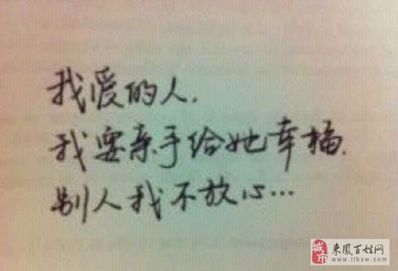 我爱的人.
我要亲手给她幸福.
别人我不放心...
城市
来凤百姓网
www.lfbxw.com